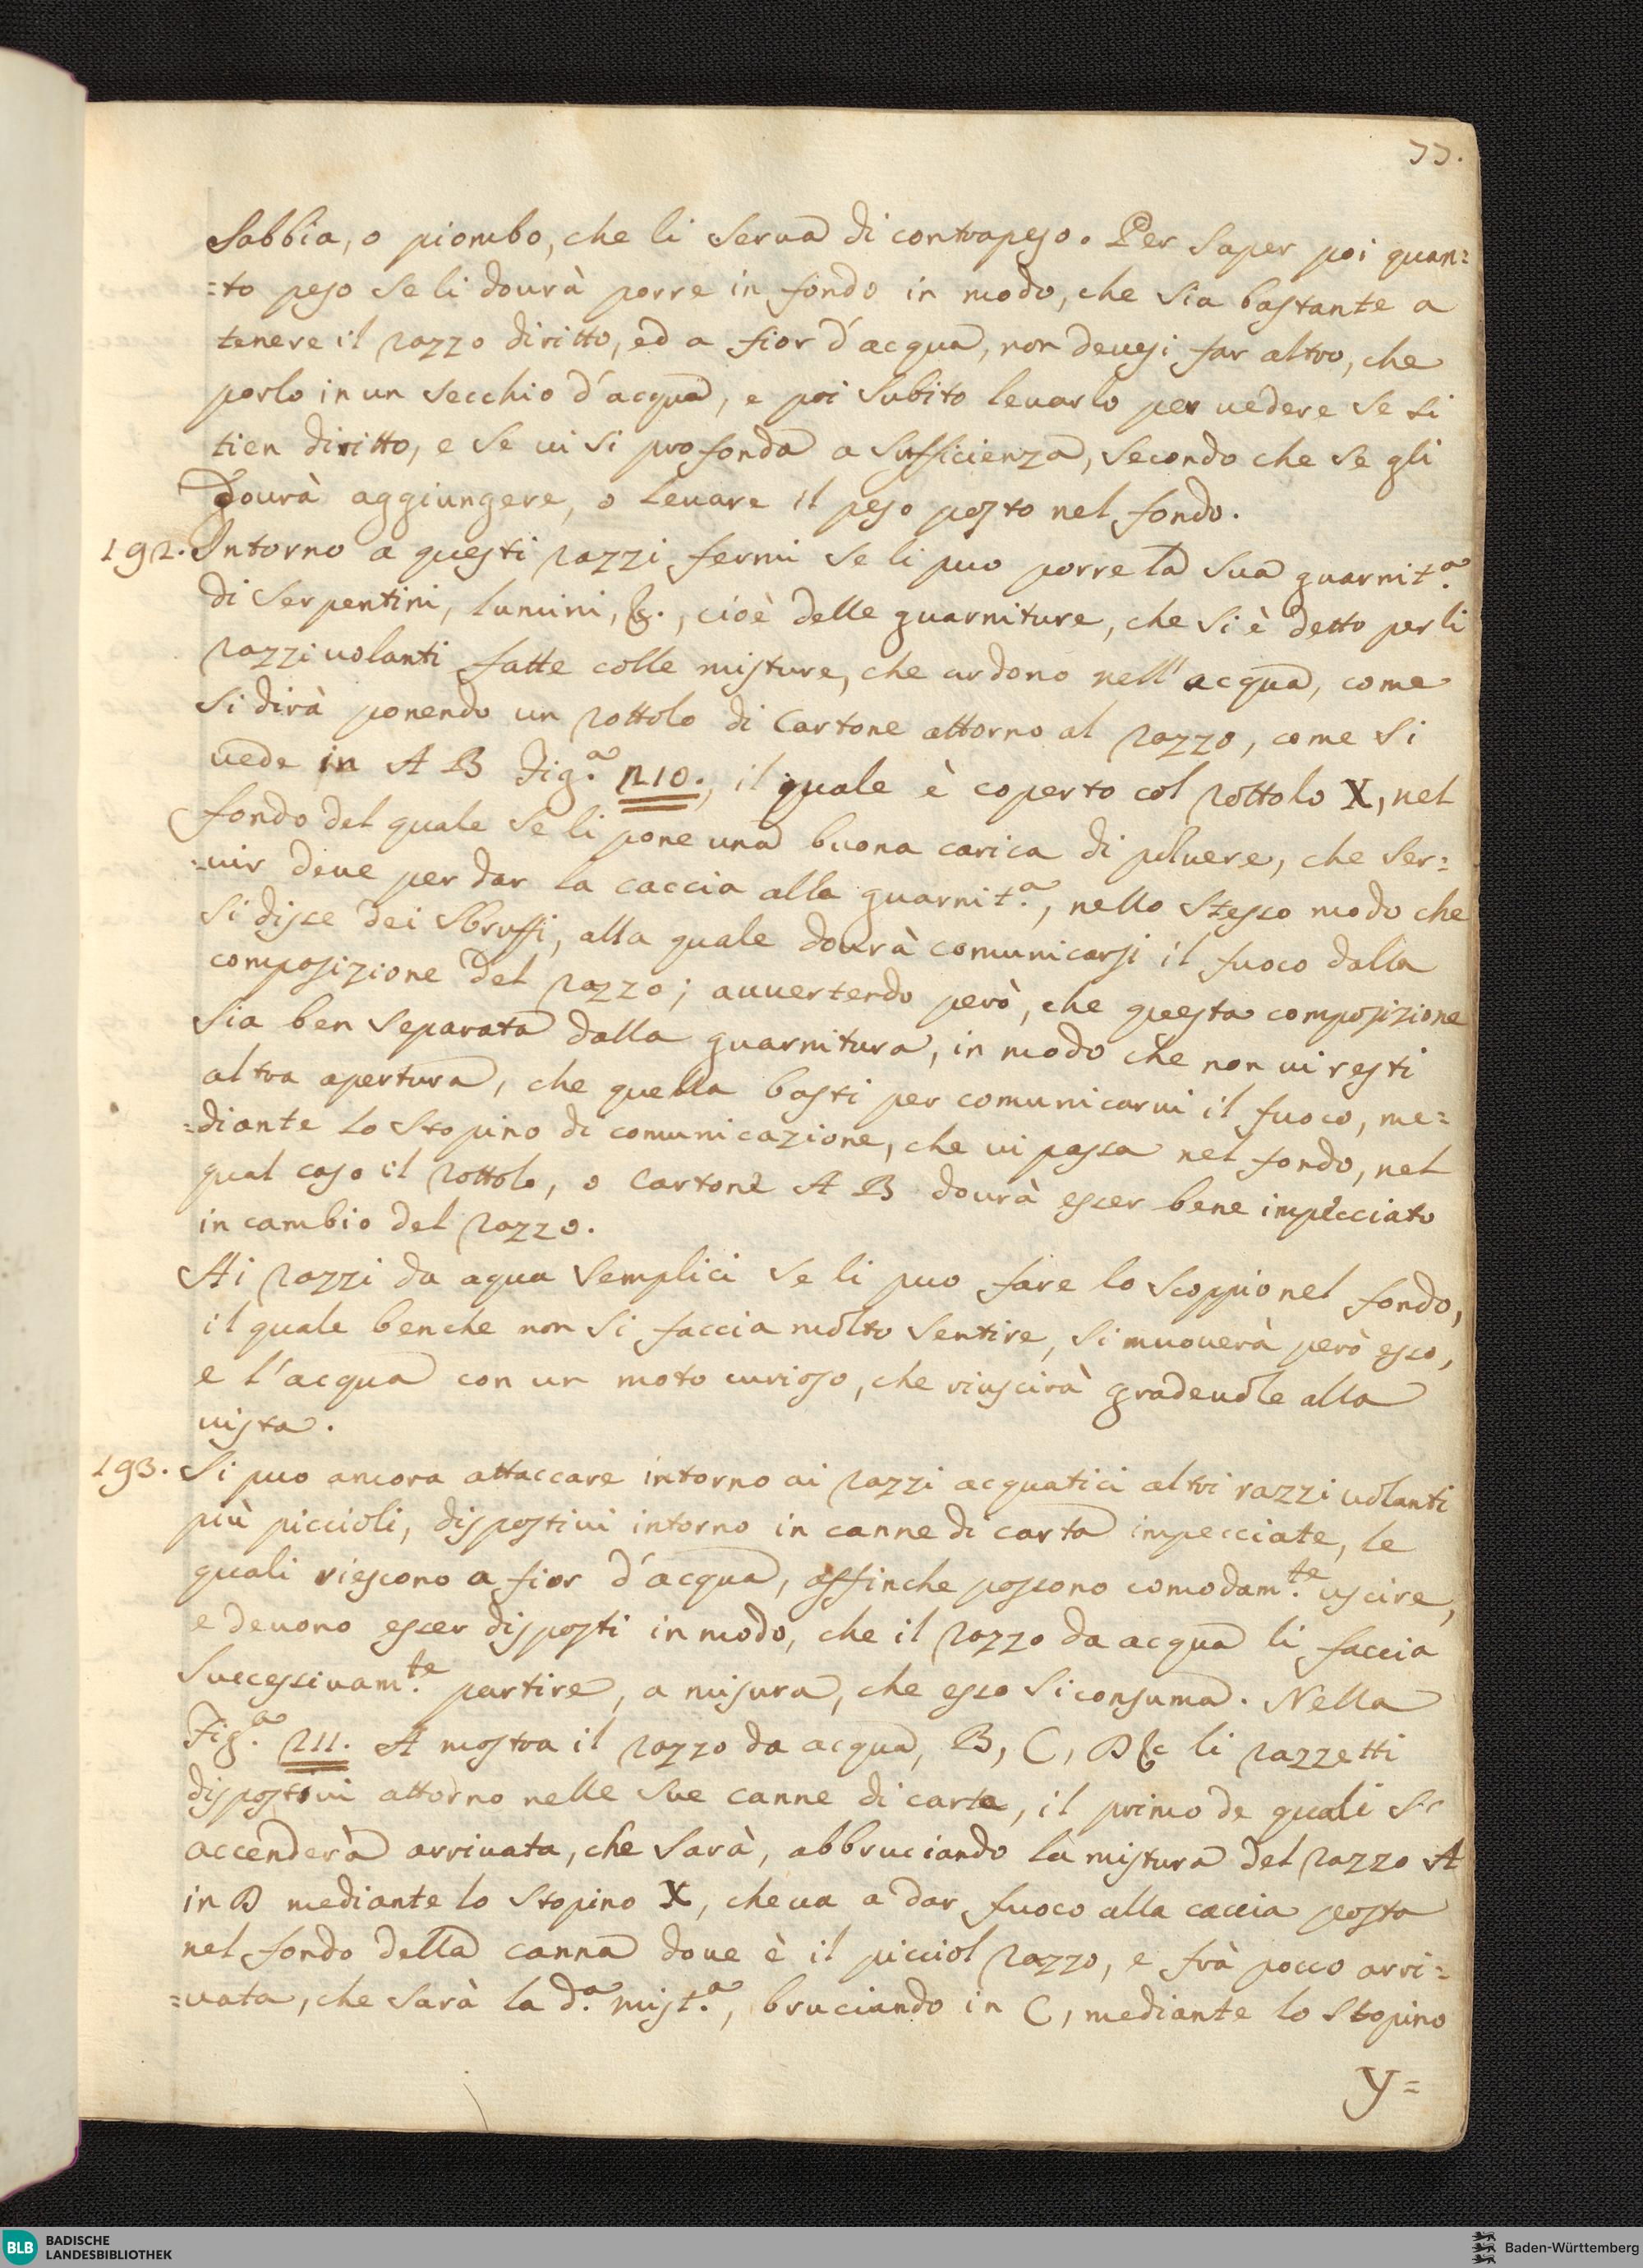 77.
Sabbia, o piombo, che li serva di contrapeso. Per saper poi quan=
=to peso se li dovrà porre in fondo in modo, che sia bastante a
tenere il razzo diritto, ed a fior d'acqua, non devesi far altro, che
porlo in un secchio d'acqua, e poi subito levarlo per vedere se si
tien diritto, e se vi si profonda a sufficienza, secondo che se gli
dovrà aggiungere, o levare il peso posto nel fondo.
192. Intorno a questi razzi fermi se li puo porre la sua guarnit.a
di serpentini, lumini, &., cioè delle guarniture, che si è detto per li
razzi volanti fatte colle misture, che ardono nell'acqua, come
si dirà ponendo un rottolo di Cartone attorno al razzo, come si
vede in A B Fig.a 210., il quale è coperto col rottolo X, nel
fondo del quale se li pone una buona carica di polvere, che ser=
=vir deve per dar la caccia alla guarnit.a, nello stesso modo che
si disse dei sbruffi, alla quale dovrà comunicarsi il fuoco dalla
composizione del razzo; avvertendo però, che questa composizione
sia ben separata dalla guarnitura, in modo che non vi resti
altra apertura, che quella basti per comunicarvi il fuoco, me=
=diante lo stopino di comunicazione, che vi passa nel fondo, nel
qual caso il rottolo, o Cartone A B dovrà esser bene impecciato
in cambio del razzo.
Ai razzi da aqua semplici se li puo fare lo scoppio nel fondo,
il quale benche non si faccia molto sentire, si muoverà però esso,
e l'acqua con un moto curioso, che riuscirà gradevole alla
vista.
193. Si puo ancora attaccare intorno ai razzi acquatici altri razzi volanti
più piccioli, dispostivi intorno in canne di carta impecciate, le
quali riescono a fior d'acqua, affinche possono comodam.te uscire,
e devono esser disposti in modo, che il razzo da acqua li faccia
successivam.te partire, a misura, che esso si consuma. Nella
Fig.a 211. A mostra il razzo da acqua, B, C, D &c li razzetti
dispostivi attorno nelle sue canne di carta, il primo de quali si
accenderà arrivata, che sarà, abbruciando la mistura del razzo A
in B mediante lo stopino X, che va a dar fuoco alla caccia posta
nel fondo della canna dove è il picciol razzo, e frà pocco arri=
=vata, che sarà la d.a mist.a, bruciando in C, mediante lo stopino
Y=
BLB
BADISCHE
LANDESBIBLIOTHEK
Baden-Württemberg